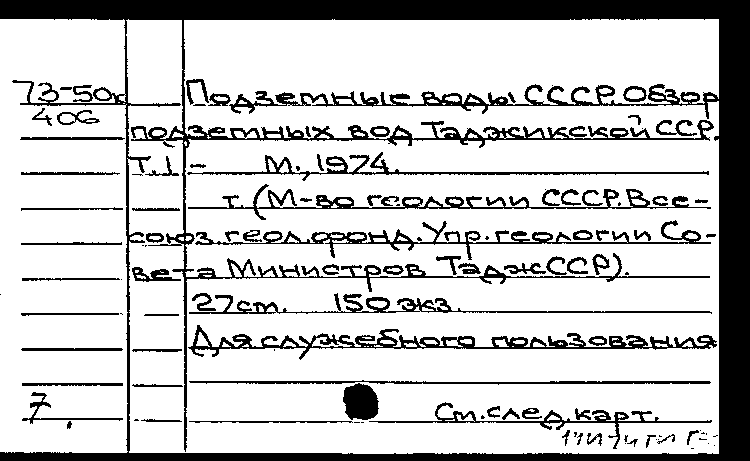 73-50к Подземные воды СССР. Обзор
406
подземных вод Таджикской ССР.
Т.1 - М., 1974.
т. (М-во геологии СССР. Все-
союз. геол. фонд. Упр. геологии Со-
вета Министров ТаджССР).
27см. 150 экз.
Для служебного пользования
7.
См. след. карт.